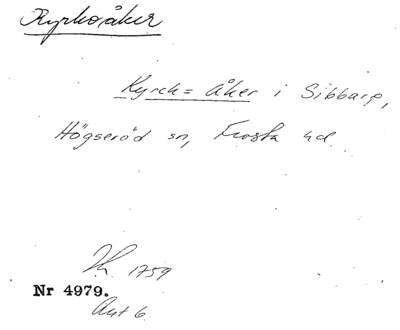 Kyrkoåker
Kyrck= åker i Sibbarp,
Högseröd sn, Frosta hd.
1759
Nr 4979.
Akt 6